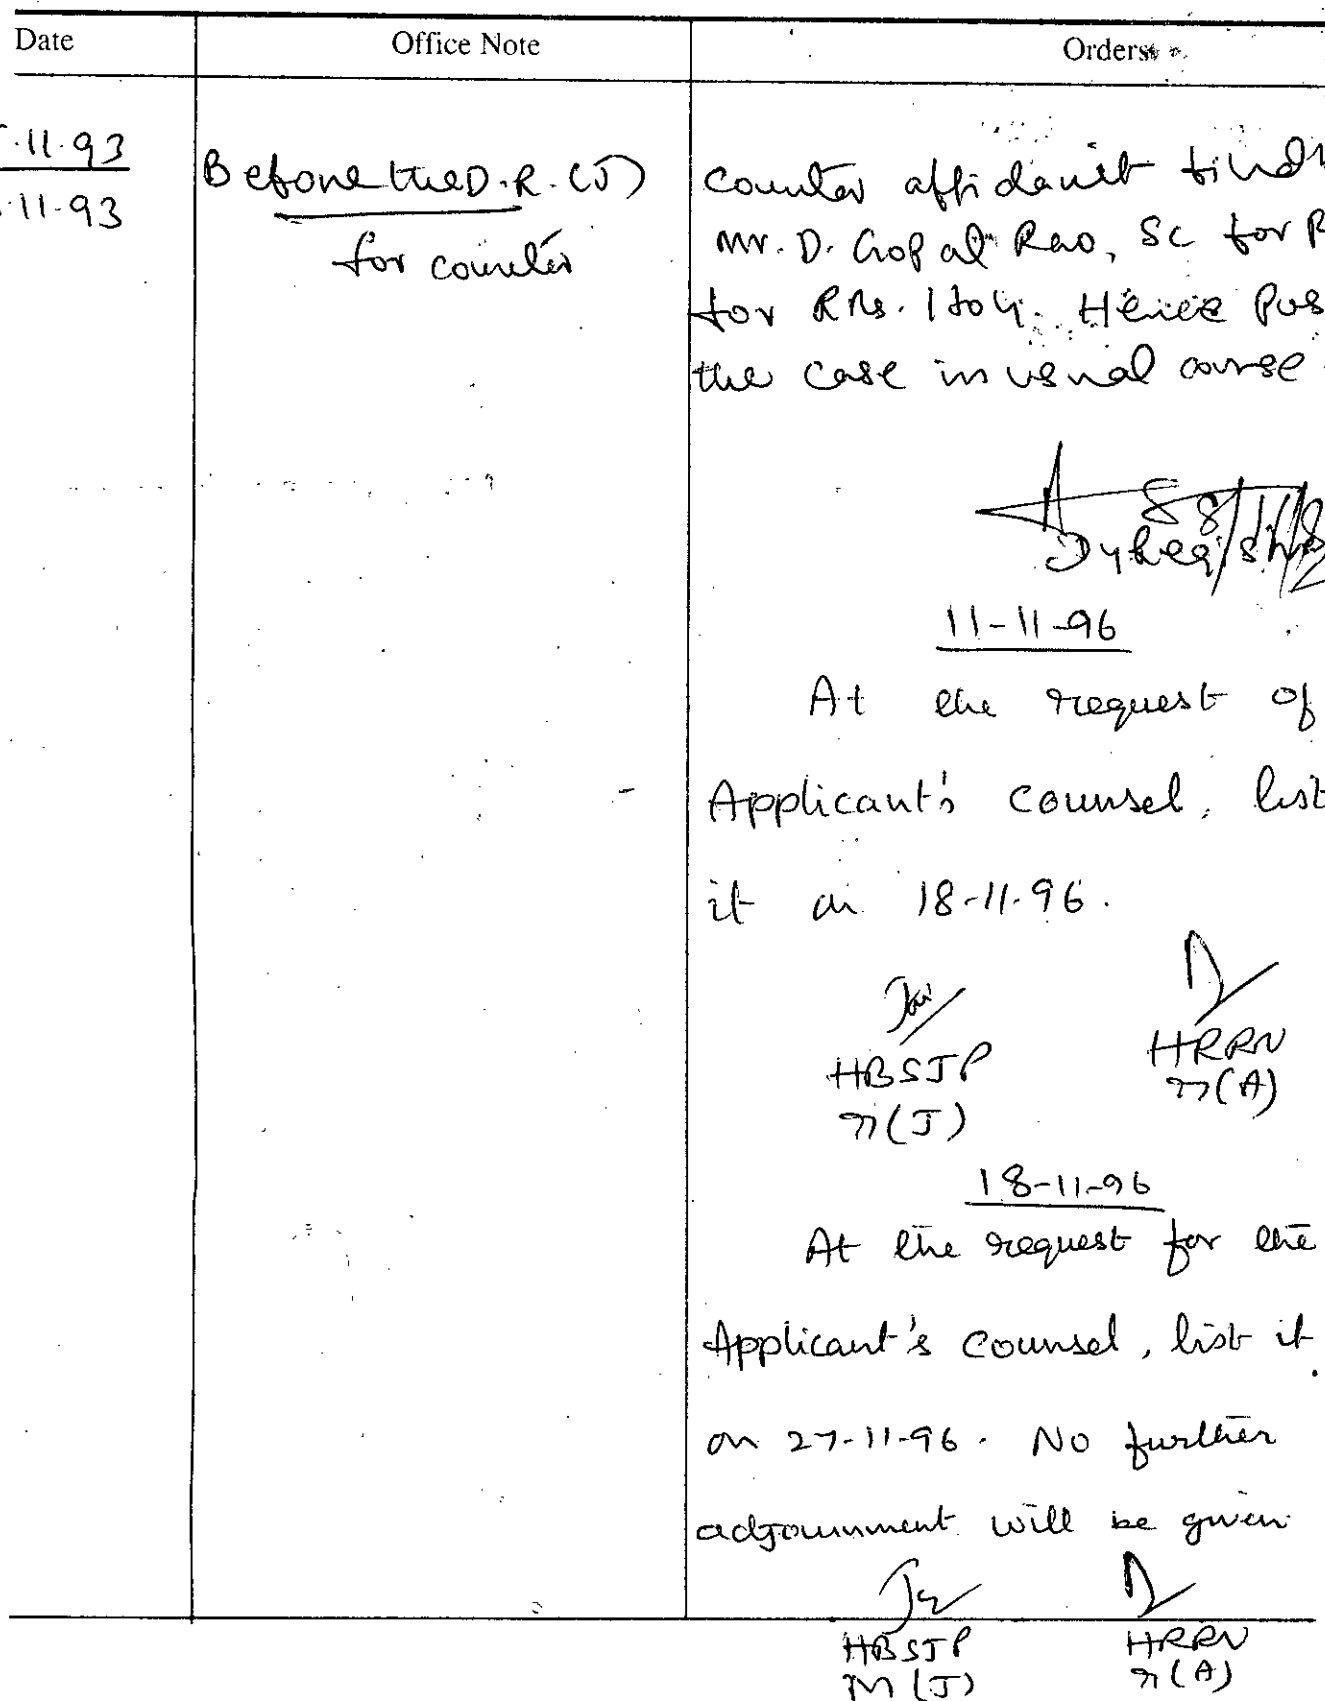 Date
Office Note
Orders
.11.93
.11-93
Before the D.R.(J)
for counter
counter affidavit
Mr. D. Gopal Rao, SC for
for RRs. 1 to 4. Hence
the case in usual course.
11-11-96
At the request of
Applicant's counsel, list
it on 18-11-96.
HBSJP
M(J)
HRRN
M(A)
18-11-96
At the request for the
Applicant's counsel, list it
on 27-11-96. No further
adjournment will be given
HBSJP
M(J)
HRRN
M(A)